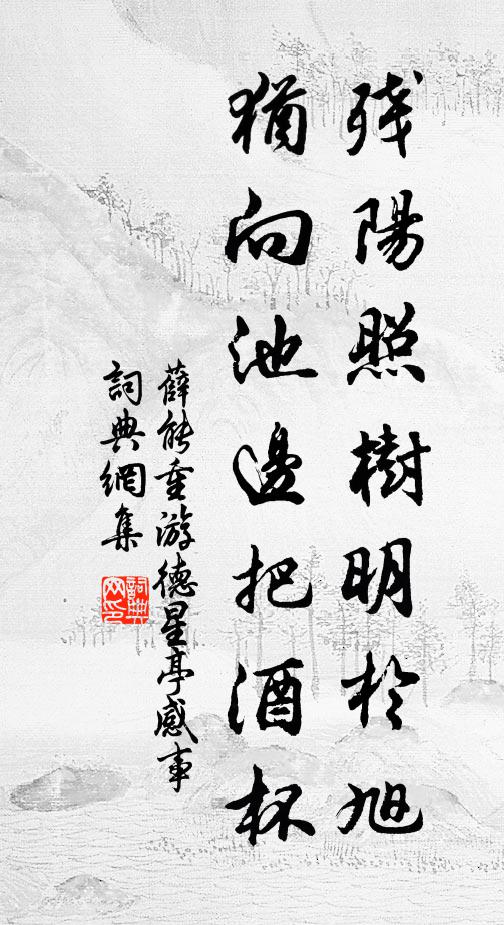 殘陽照樹明於旭
猶向池邊把酒杯
薛能重游德星亭感事
詞典網集
詞典網印